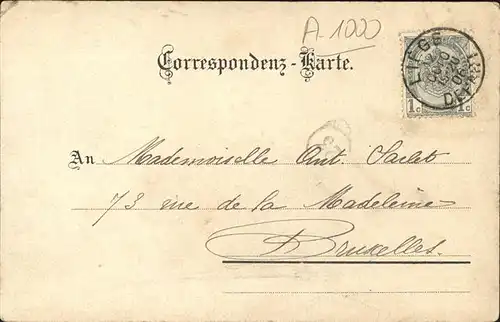 A-1000
Correspondenz-Karte.
LIEGE
DEPART
1c 1c
An Mademoiselle Ant. Sacleb
73 rue de la Madeleine
Bruxelles.